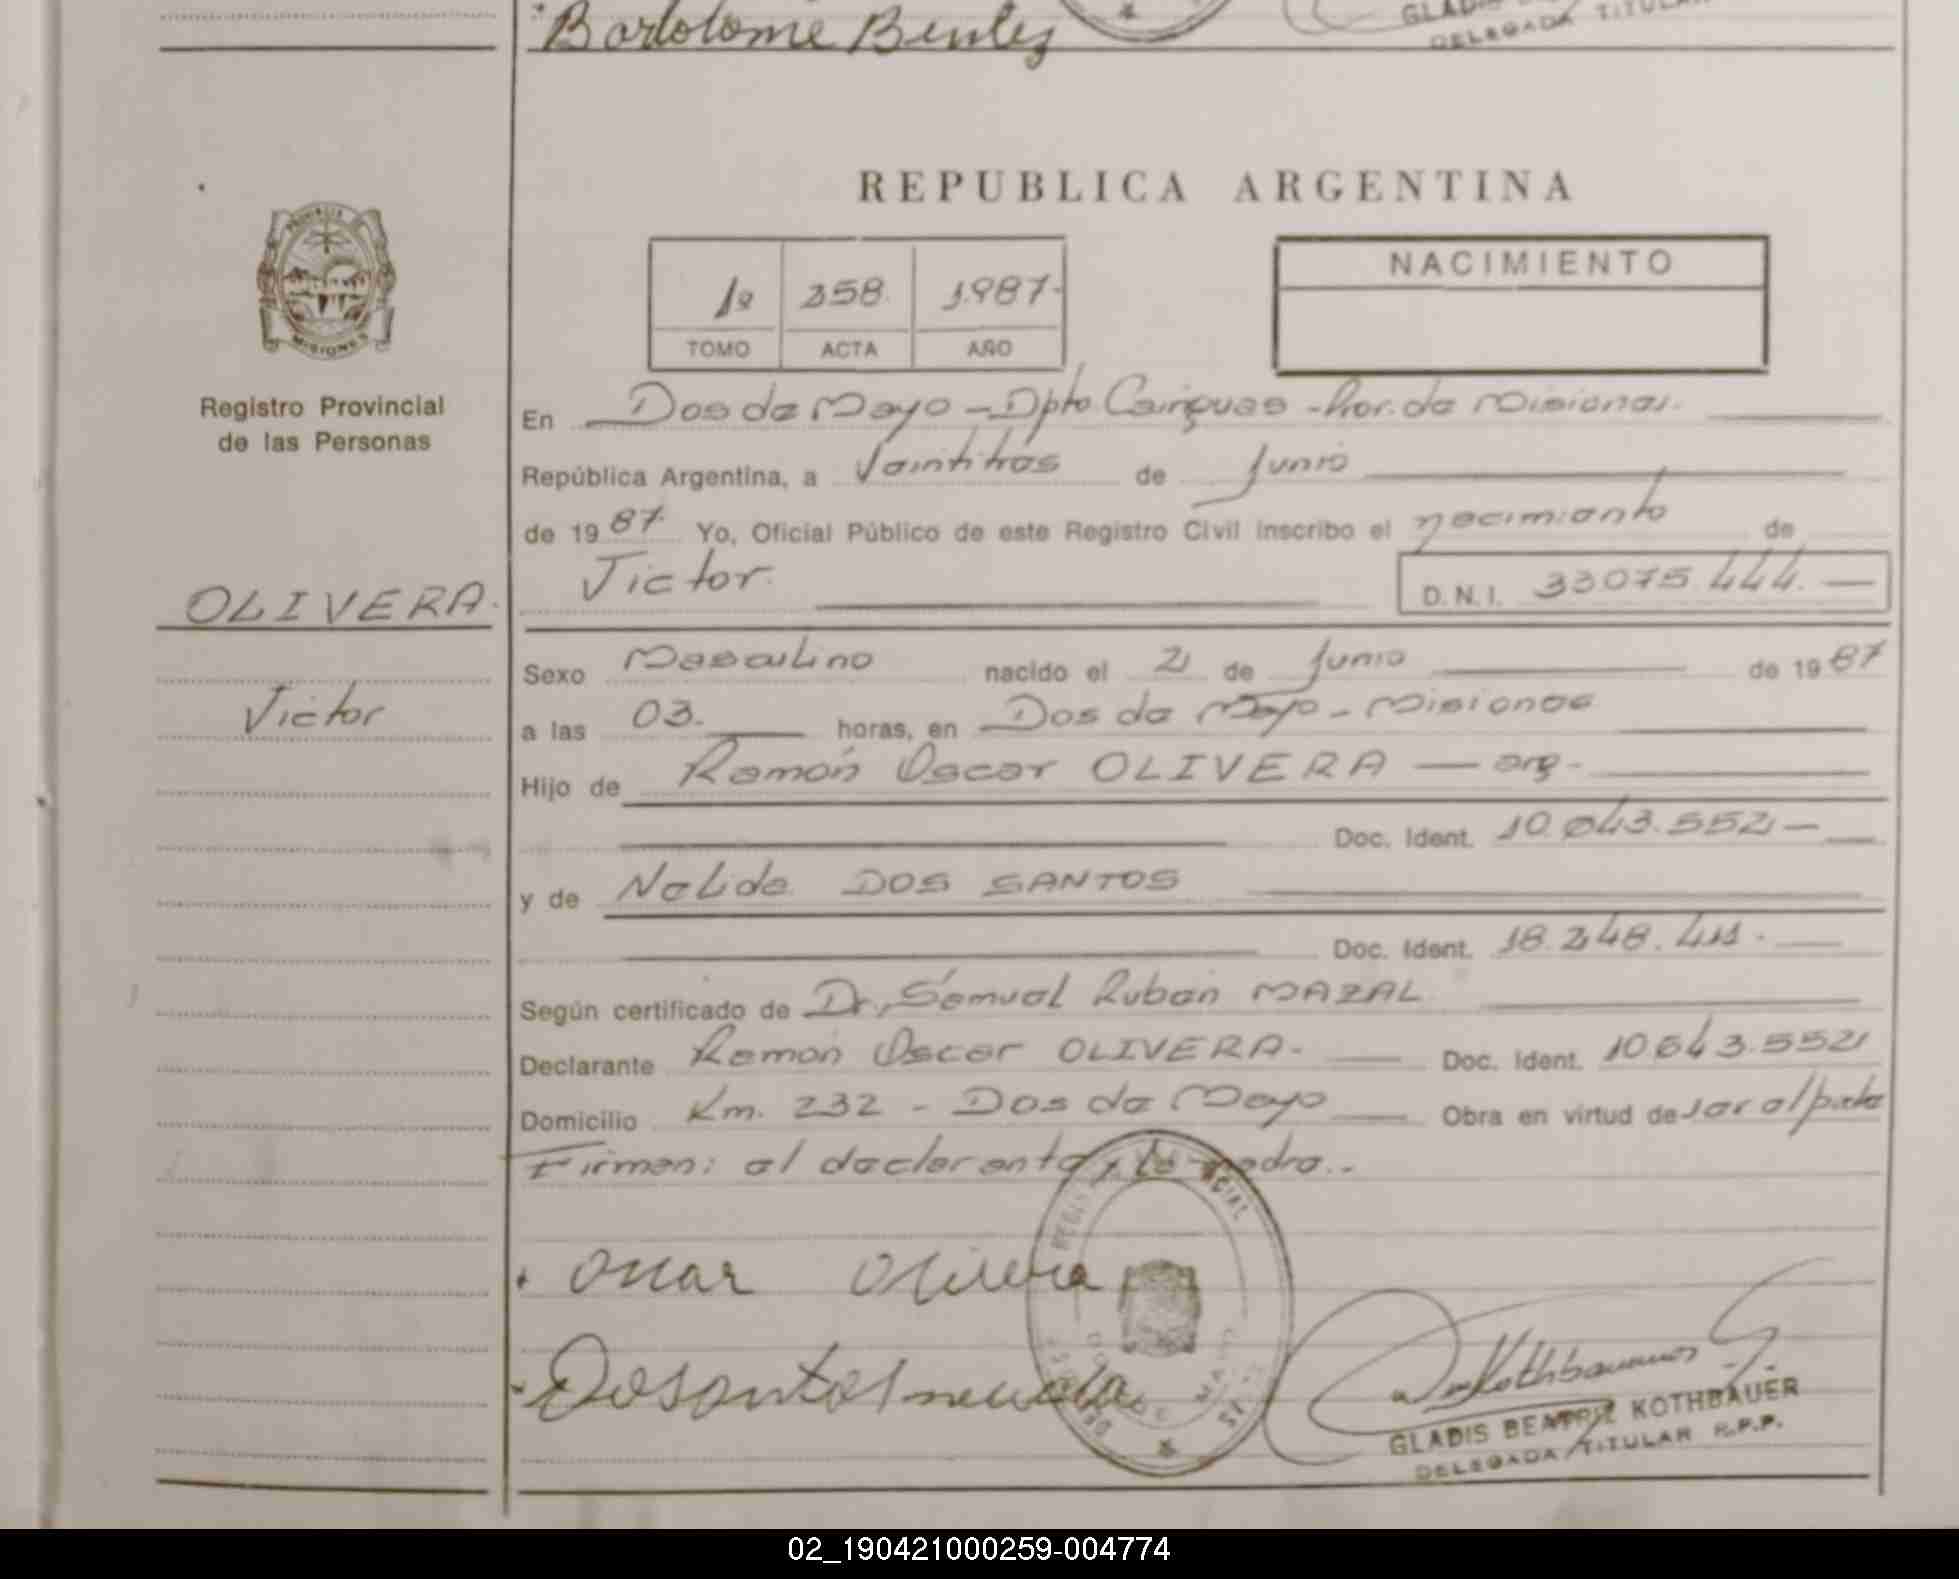 Bartolome Benitez
DELEGADA TITULAR
REPUBLICA ARGENTINA
NACIMIENTO
1º 358. 1.987-
TOMO ACTA AÑO
MISIONES
Registro Provincial
de las Personas
En Dos de Mayo - Dpto Cainguas - Prov. de Misiones.
República Argentina, a Veintitres de Junio
de 19 87. Yo, Oficial Público de este Registro Civil inscribo el nacimiento de
Victor. D.N.I. 33075.444.
OLIVERA.
Victor
Sexo Masculino nacido el 21 de Junio de 19 87
a las 03. horas, en Dos de Mayo - Misiones
Hijo de Ramón Oscar OLIVERA — arg-
Doc. Ident. 10.643.552
y de Nelida DOS SANTOS
Doc. Ident. 18.248.411.
Según certificado de Dr. Samuel Ruben MAZAL
Declarante Ramón Oscar OLIVERA. Doc. Ident. 10.643.552
Domicilio Km. 232 - Dos de Mayo Obra en virtud de
Firman: el declarante y la madre.-
Oscar Olivera
GLADIS BEATRIZ KOTHBAUER
DELEGADA TITULAR R.P.P.
02_190421000259-004774